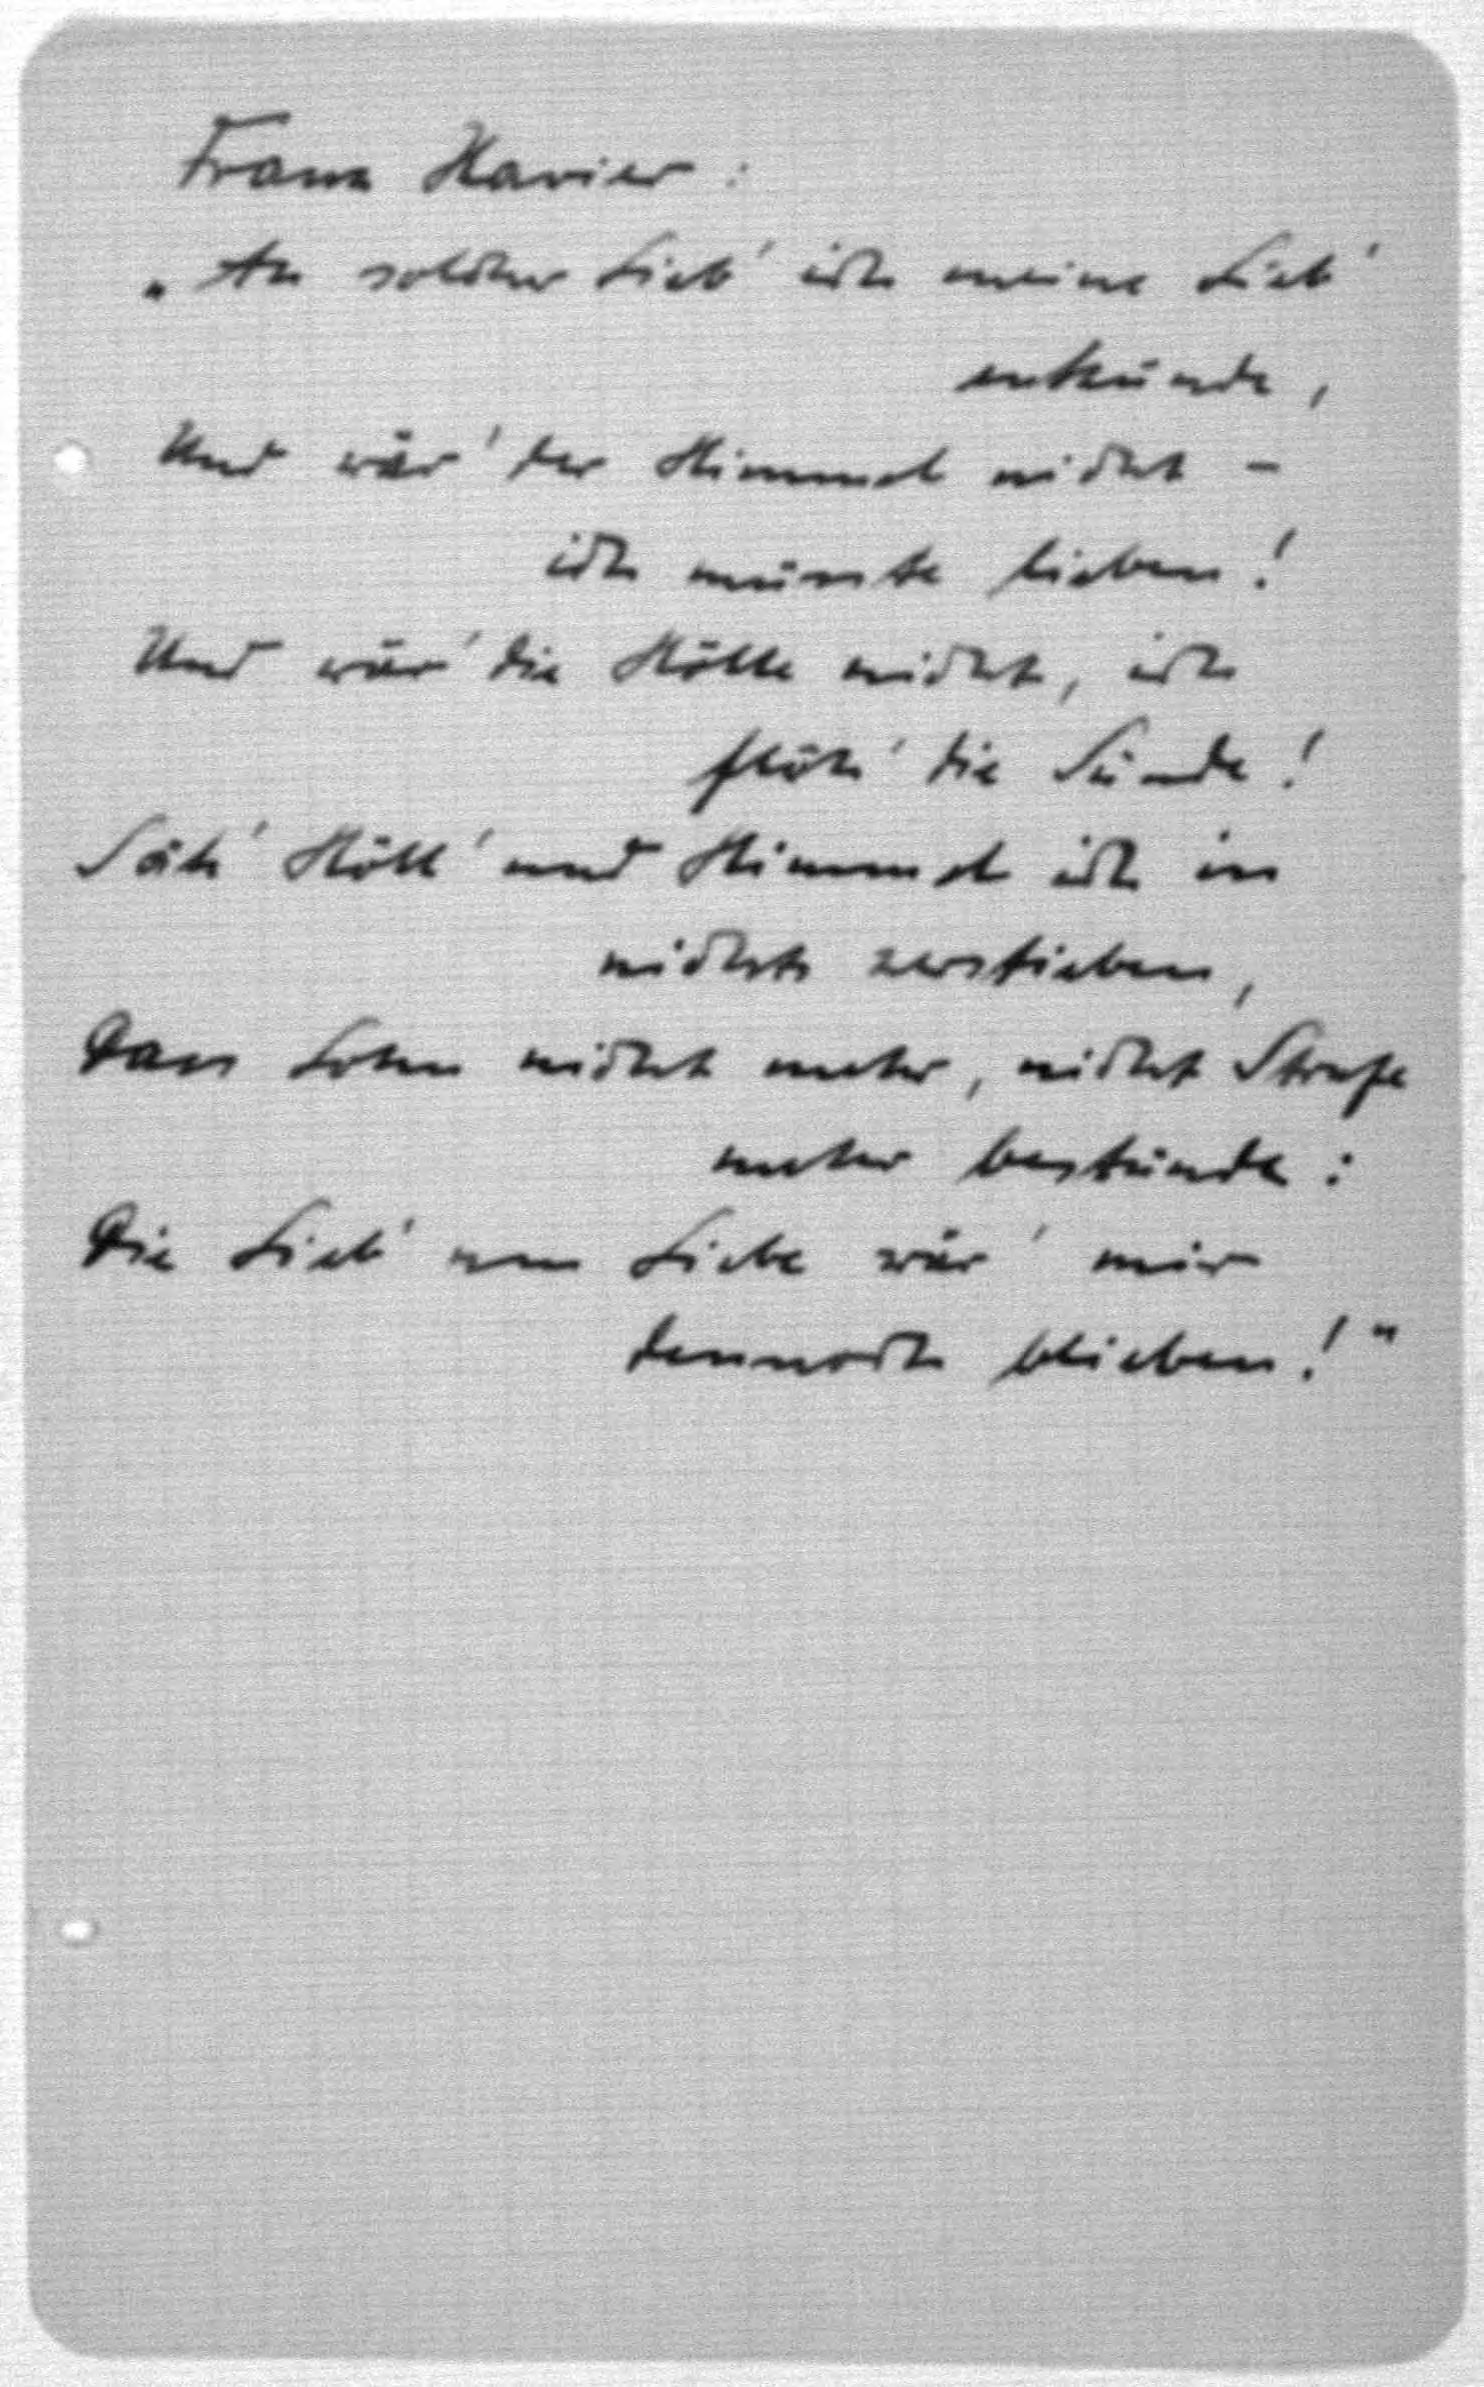 Franz Xavier :
„An solcher Lieb' ich meine Lieb'
entzünde,
Und wär' der Himmel nicht –
ich müsste lieben!
Und wär' die Hölle nicht, ich
flöh' die Sünde!
Säh' Höll' und Himmel ich in
nichts zerstieben,
Dass Lohn nicht mehr, nicht Strafe
mehr bestünde:
Die Lieb' um Liebe wär' mir
dennoch blieben!"